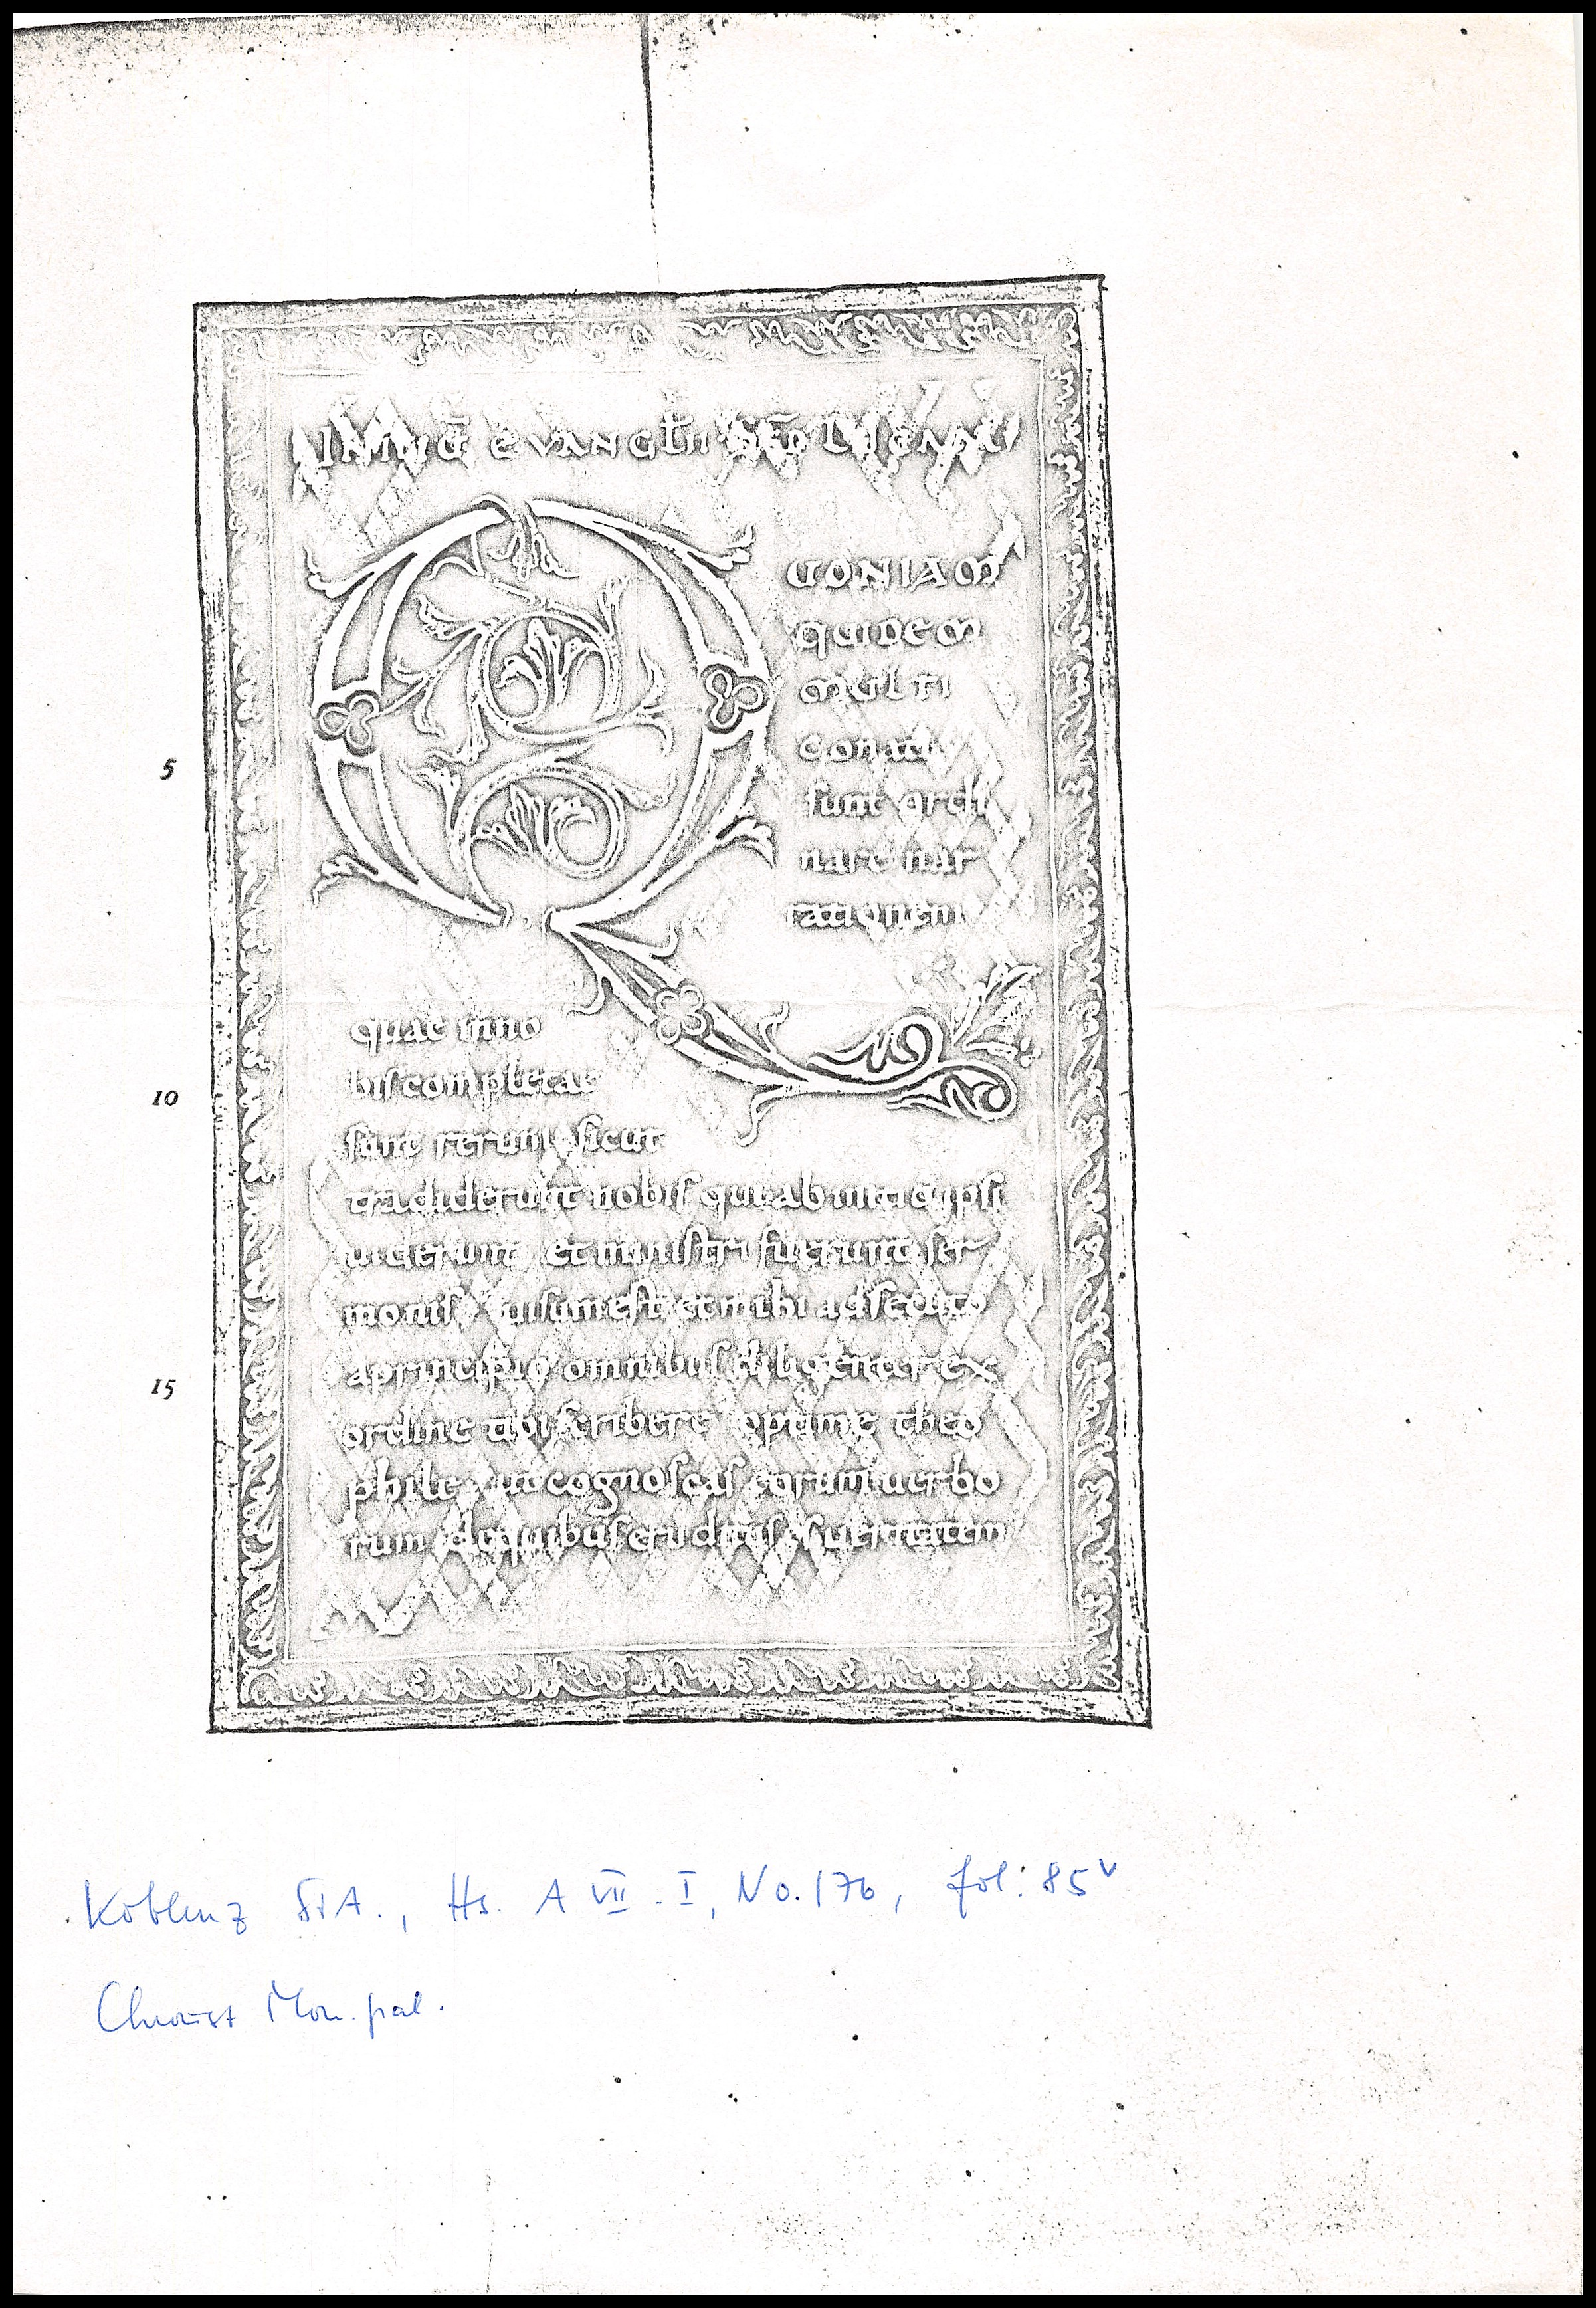 INITIU̅ EVANGLII SCD̅ LUCANU
QUONIAM
quidem
MULTI
Conati
sunt ordi
nare nar
rationem
5
quae inno
bis completae
10
sunt rerum sicut
tradiderunt nobis qui ab initio ipsi
uiderunt et ministri fuerunt ser
monis uisum est et mihi adsecuto
a principio omnibus diligenter ex
15
ordine tibi scribere optime theo
phile ut cognoscas eorum uerbo
rum de quibus eruditus es ueritatem
Koblenz StA., Hs. A VII. I, No. 176, fol: 85v
Chroust Mon. pal.